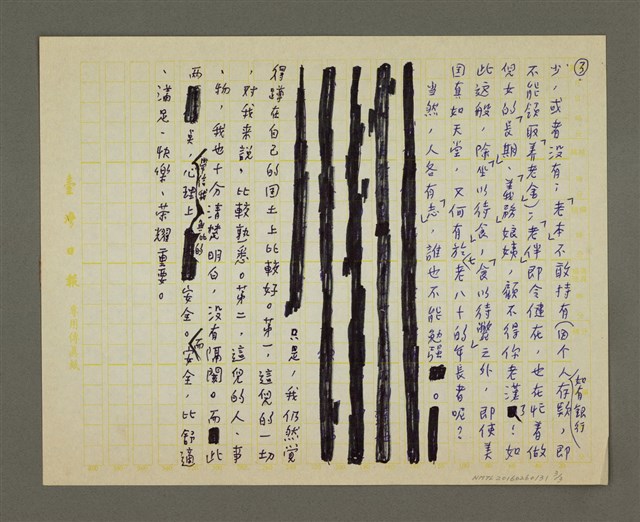 ③
少，或者没有；「老本」不敢持有(因个人如有銀行存款，即
不能領取「養老金」)；「老伴」即令健在，也在忙着做
兒女的長期「義務娘姨」，顧不得你老漢了！如
此這般，除「坐以待食，食以待斃」之外，即使美
国真如天堂，又何有於七老八十的年長者呢？
当然，人各有志，誰也不能勉強。
只是，我仍然覚
得蹲在自己的国土上比較好。第一，這兒的一切
，对我来說，比較熟悉。第二，這兒的人、事
、物，我也十分清楚明白，没有隔閡。而此
两点，心理上帶給我無比的安全。而安全，比舒適
、滿足、快樂、荣耀重要。
臺灣日報
專用傳真紙